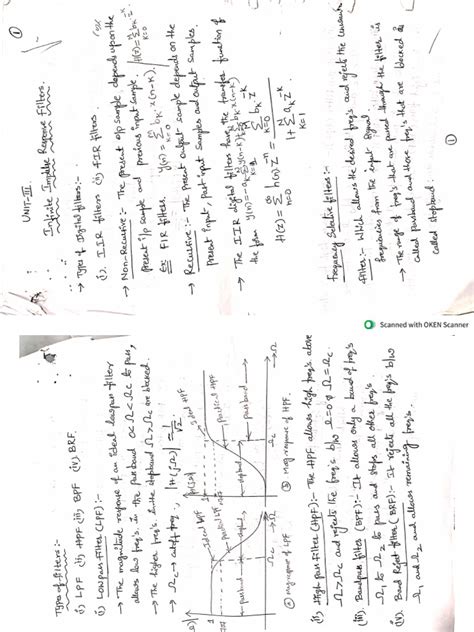 UNIT-III
Infinite Impulse Response Filters.
→ Types of Digital filters:-
(i). IIR filters (ii) FIR filters.
→ Non-Recursive:- The present o/p sample depends upon the
present i/p sample and previous input sample.
Ex: FIR filters. y(n) = Σ b_k x(n-k).
→ Recursive:- The present output sample depends on the
present input, past input samples and output samples.
→ The IIR digital filters have the transfer function of
the form
H(z) = Σ h(n) z^-n = Σ b_k z^-k / 1 + Σ a_k z^-k
Frequency Selective filters:-
filter:- Which allows the desired freq's and rejects the
frequencies from the input signal.
→ The range of freq's that are passed through the filter is
called Passband and those freq's that are blocked is
called stopband.
①
Scanned with OKEN Scanner
Types of filters:-
(i) LPF (ii) HPF (iii) BPF (iv) BRF.
(i) Lowpass Filter (LPF):-
→ The magnitude response of an Ideal lowpass filter
allows low freq's in the passband 0< Ω < Ωc to pass,
→ The higher freq's in the stopband Ω > Ωc are blocked.
→ Ωc → cutoff freq, |H(jΩ)| = 1/√2
Ideal LPF
passband
stopband
Ωc
→Ω
ⓐ Mag response of LPF
Ideal HPF
practical HPF
stopband
passband
Ωc
→Ω
ⓑ Mag response of HPF.
(ii) High pass filter (HPF):- The HPF allows high freq's above
Ω > Ωc and rejects the freq's b/w Ω=0 & Ω=Ωc.
(iii). Bandpass filter (BPF):- It allows only a band of freq's
Ω1 to Ω2 to pass and stops all other freq's
(iv). Band Reject filter (BRF):- It rejects all the freq's b/w
Ω1 and Ω2 and allows remaining freq's.